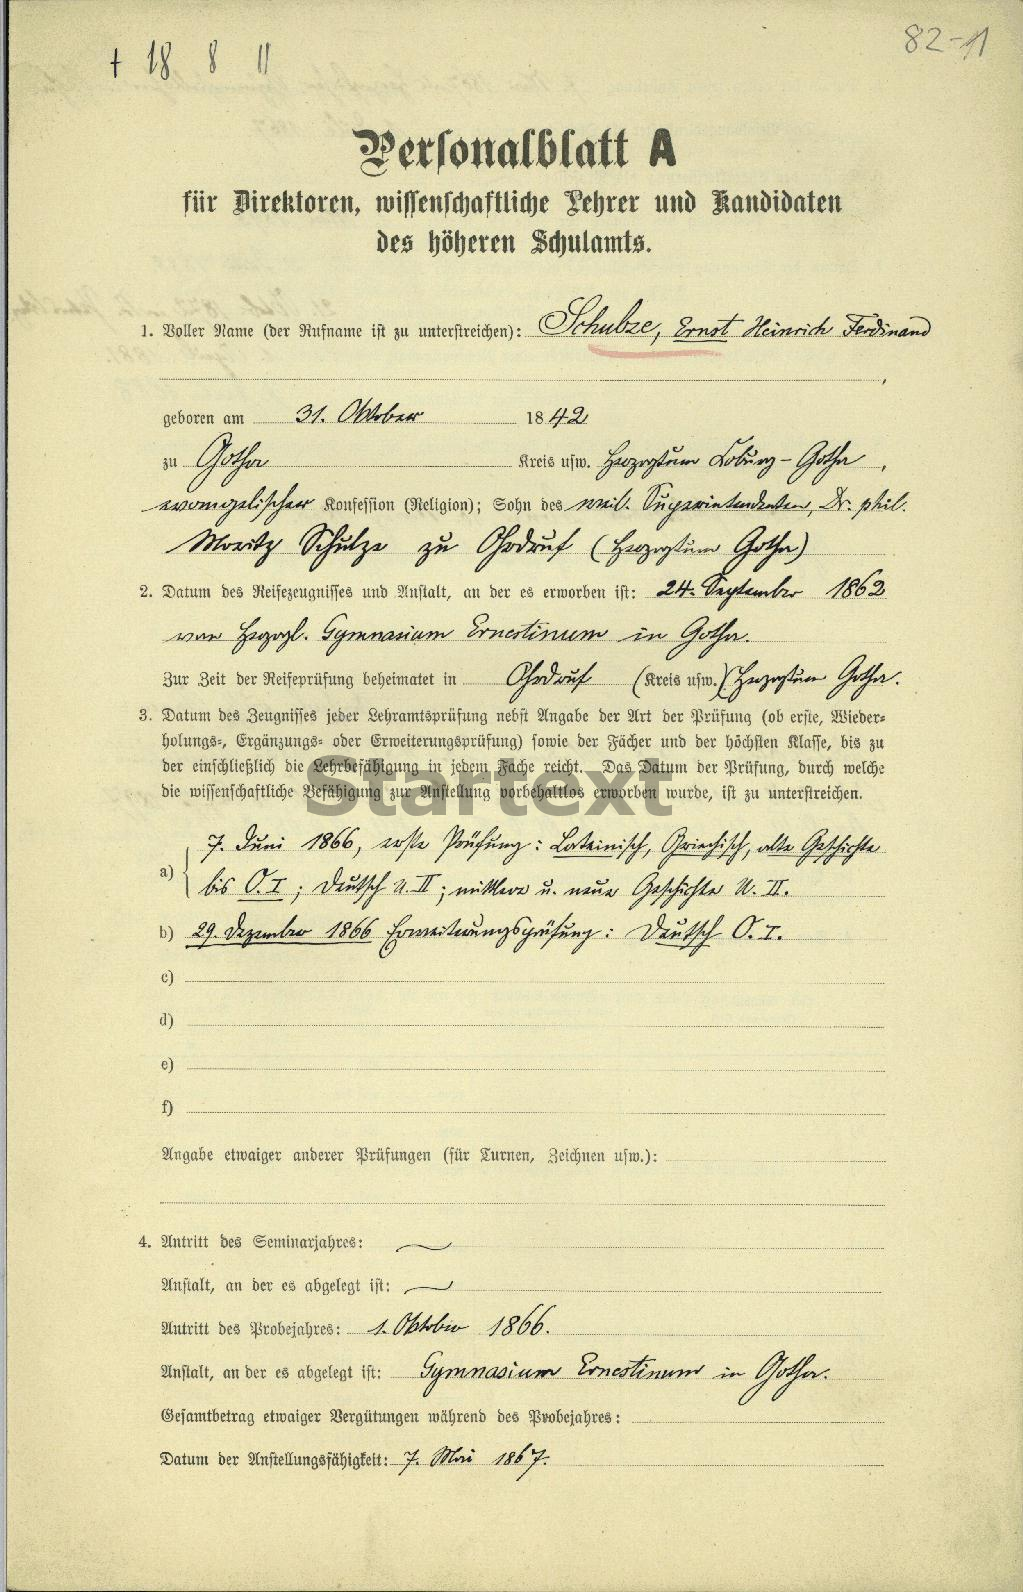 † 18 8 11
82-11
Personalblatt A
für Direktoren, wissenschaftliche Lehrer und Kandidaten
des höheren Schulamts.
1. Voller Name (der Rufname ist zu unterstreichen): Schulze, Ernst Heinrich Ferdinand
geboren am 31. Oktober 1842
zu Gotha Kreis usw. Herzogtum Coburg-Gotha,
evangelischer Konfession (Religion); Sohn des weil. Superintendenten, Dr. phil.
Moritz Schulze zu Ohrdruf (Herzogtum Gotha)
2. Datum des Reifezeugnisses und Anstalt, an der es erworben ist: 24. September 1862
vom Herzogl. Gymnasium Ernestinum in Gotha.
Zur Zeit der Reifeprüfung beheimatet in Ohrdruf (Kreis usw.) Herzogtum Gotha.
3. Datum des Zeugnisses jeder Lehramtsprüfung nebst Angabe der Art der Prüfung (ob erste, Wieder-
holungs-, Ergänzungs- oder Erweiterungsprüfung) sowie der Fächer und der höchsten Klasse, bis zu
der einschließlich die Lehrbefähigung in jedem Fache reicht. Das Datum der Prüfung, durch welche
die wissenschaftliche Befähigung zur Anstellung vorbehaltlos erworben wurde, ist zu unterstreichen.
Startext
a) 7. Juni 1866, erste Prüfung: Lateinisch, Griechisch, alte Geschichte
bis O. I; Deutsch U. II; mittlere u. neue Geschichte U. II.
b) 29. Dezember 1866 Erweiterungsprüfung: Deutsch O. I.
c)
d)
e)
f)
Angabe etwaiger anderer Prüfungen (für Turnen, Zeichnen usw.):
4. Antritt des Seminarjahres:
Anstalt, an der es abgelegt ist:
Antritt des Probejahres: 1. Oktober 1866.
Anstalt, an der es abgelegt ist: Gymnasium Ernestinum in Gotha.
Gesamtbetrag etwaiger Vergütungen während des Probejahres:
Datum der Anstellungsfähigkeit: 7. Mai 1867.